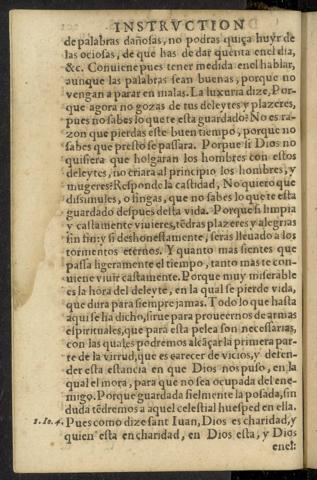 INSTRVCTION
de palabras dañosas, no podras quiça huyr de
las ociosas, de que has de dar quenta enel dia,
&c. Conuiene pues tener medida enel hablar,
aunque las palabras sean buenas, porque no
vengan a parar en malas. La luxuria dize, Por-
que agora no gozas de tus deleytes y plazeres,
pues no sabes lo que te esta guardado? No es ra-
zon que pierdas este buen tiempo, porque no
sabes que presto se passara. Porque si Dios no
quisiera que holgaran los hombres con estos
deleytes, no criara al principio los hombres, y
mugeres? Responde la castidad, No quiero que
dissimules, o fingas, que no sabes lo que te esta
guardado despues desta vida. Porque si limpia
y castamente viuieres, tẽdras plazeres y alegrias
sin fin: y si deshonestamente, seras lleuado a los
tormentos eternos. Y quanto mas sientes que
passa ligeramente el tiempo, tanto mas te con-
uiene viuir castamente. Porque muy miserable
es la hora del deleyte, en la qual se pierde vida,
que dura para siempre jamas. Todo lo que hasta
aqui se ha dicho, sirue para proueernos de armas
espirituales, que para esta pelea son necessarias,
con las quales podremos alcãçar la primera par-
te de la virtud, que es carecer de vicios, y defen-
der esta estancia en que Dios nos puso, en la
qual el mora, para que no sea ocupada del ene-
migo. Porque guardada fielmente la posada, sin
duda tẽdremos a aquel celestial huesped en ella.
1. Io. 4. Pues como dize sant Iuan, Dios es charidad, y
quien esta en charidad, en Dios esta, y Dios
enel: